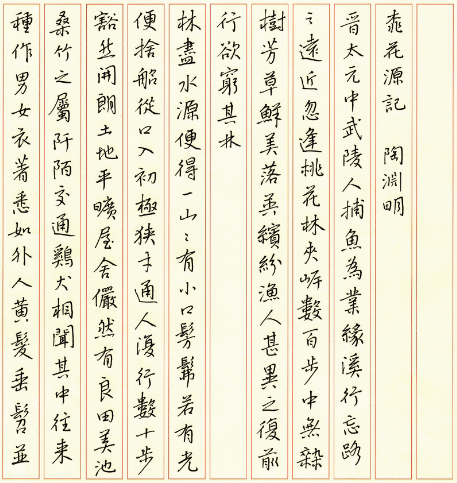 桃花源記　陶淵明
晉太元中武陵人捕魚為業緣溪行忘路
之遠近忽逢桃花林夾岸數百步中無雜
樹芳草鮮美落英繽紛漁人甚異之復前
行欲窮其林
林盡水源便得一山〻有小口髣髴若有光
便捨船從口入初極狹才通人復行數十步
豁然開朗土地平曠屋舍儼然有良田美池
桑竹之屬阡陌交通鷄犬相聞其中往来
種作男女衣著悉如外人黃髮垂髫並